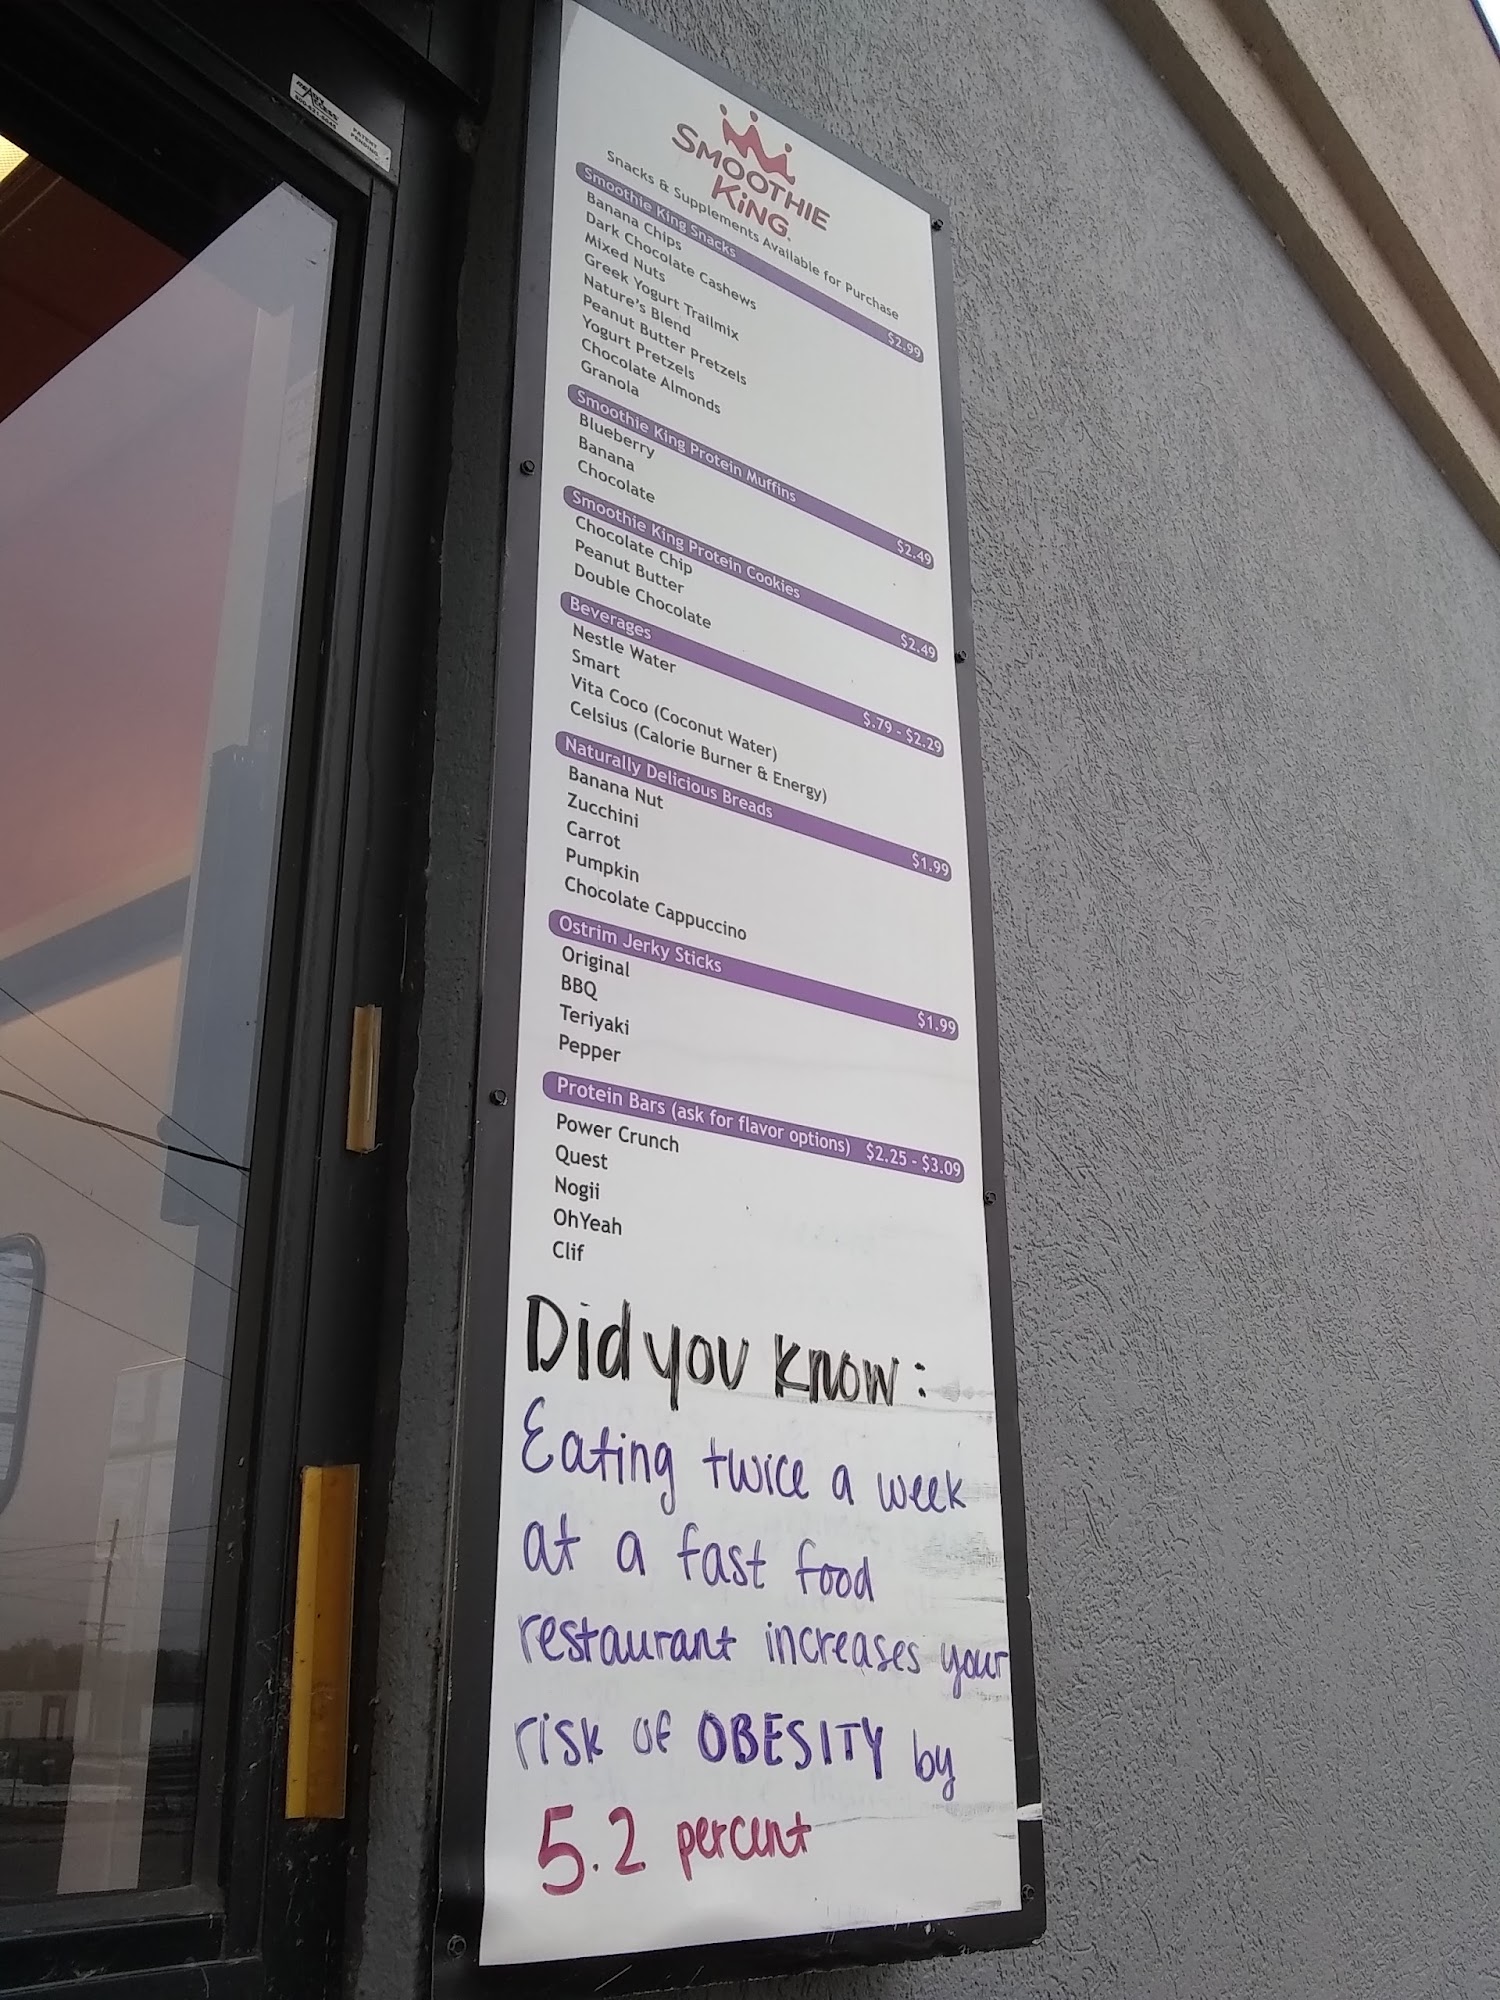 SMOOTHIE
KiNG
Snacks & Supplements Available for Purchase
Smoothie King Snacks $2.99
Banana Chips
Dark Chocolate Cashews
Mixed Nuts
Greek Yogurt Trailmix
Nature's Blend
Peanut Butter Pretzels
Yogurt Pretzels
Chocolate Almonds
Granola
Smoothie King Protein Muffins $2.49
Blueberry
Banana
Chocolate
Smoothie King Protein Cookies $2.49
Chocolate Chip
Peanut Butter
Double Chocolate
Beverages $.79 - $2.29
Nestle Water
Smart
Vita Coco (Coconut Water)
Celsius (Calorie Burner & Energy)
Naturally Delicious Breads $1.99
Banana Nut
Zucchini
Carrot
Pumpkin
Chocolate Cappuccino
Ostrim Jerky Sticks $1.99
Original
BBQ
Teriyaki
Pepper
Protein Bars (ask for flavor options) $2.25 - $3.09
Power Crunch
Quest
Nogii
OhYeah
Clif
Did you know:
Eating twice a week
at a fast food
restaurant increases your
risk of OBESITY by
5.2 percent
PATENT
PENDING